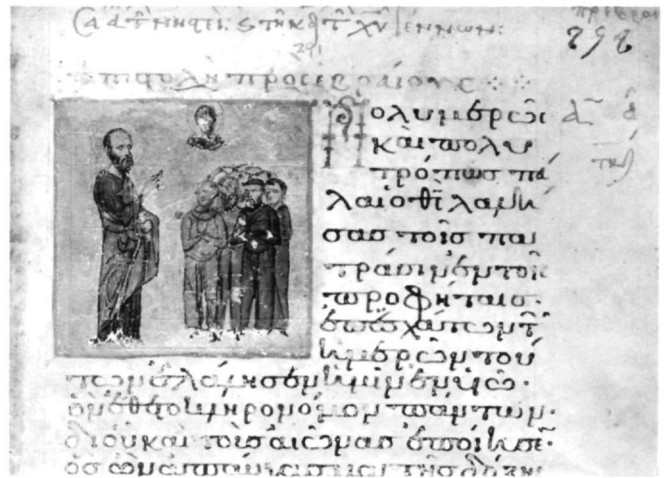 291
ἐπιστολὴ πρὸς ἑβραίους
Πολυμερῶς
καὶ πολυ
τρόπως πά
λαι ὁ θς λαλή
σας τοῖς πα
τράσιν ἐν τοῖς
προφήταις·
ἐπ' ἐσχάτων τῶν
ἡμερῶν τού
των ἐλάλησεν ἡμῖν ἐν υἱῷ·
ὃν ἔθετο κληρονόμον πάντων·
δι' οὗ καὶ τοὺς αἰῶνας ἐποίησε·
ὃς ὢν ἀπαύγασμα τῆς δόξης